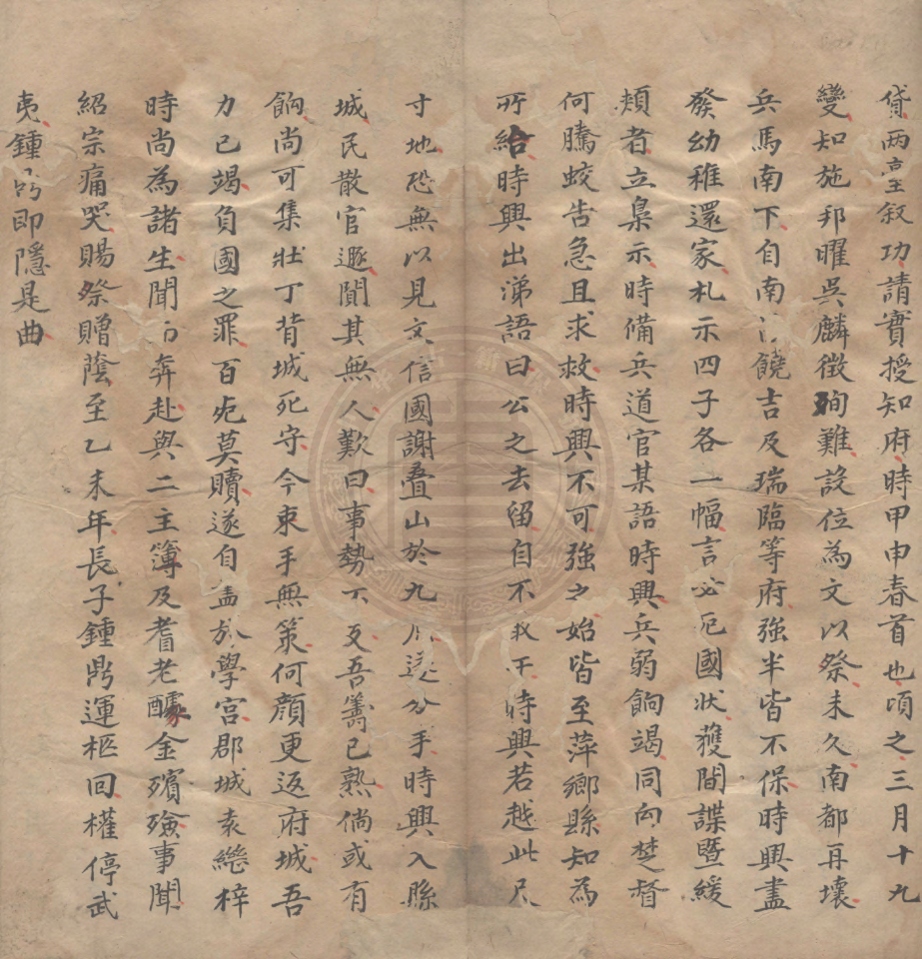 貸兩臺叙功請實授知府時甲申春首也項之三月十九
變知施邦曜吳麟徵殉難設位為文以祭未久南都再壞
兵馬南下自南饒吉及瑞臨等府強半皆不保時興盡
發幼稚還家札示四子各一幅言必死國狀獲間諜暨緩
頰者立梟示時備兵道官某語時興兵弱餉竭同向楚督
何騰蛟告急且求救時興不可強之始皆至萍鄉縣知為
所紿時興出涕語曰公之去留自不敢干時興若越此尺
寸地恐無以見文信國謝疊山於九遂分手時興入縣
城民散官遯闃其無人歎曰事勢不支吾籌已熟倘或有
餉尚可集壯丁背城死守今束手無策何顏更返府城吾
力已竭負國之罪百死莫贖遂自盡於學宮郡城袁繼梓
時尚為諸生聞奔赴與二主簿及耆老醵金殯殮事聞
紹宗痛哭賜祭贈蔭至乙未年長子鍾鼎運柩回櫂停武
夷鍾即隱是曲